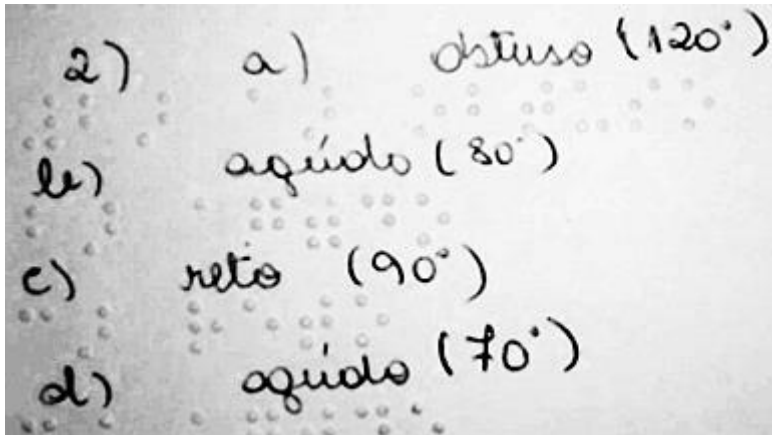 2) a) obtuso (120°)
b) agúdo (80°)
c) reto (90°)
d) agúdo (70°)